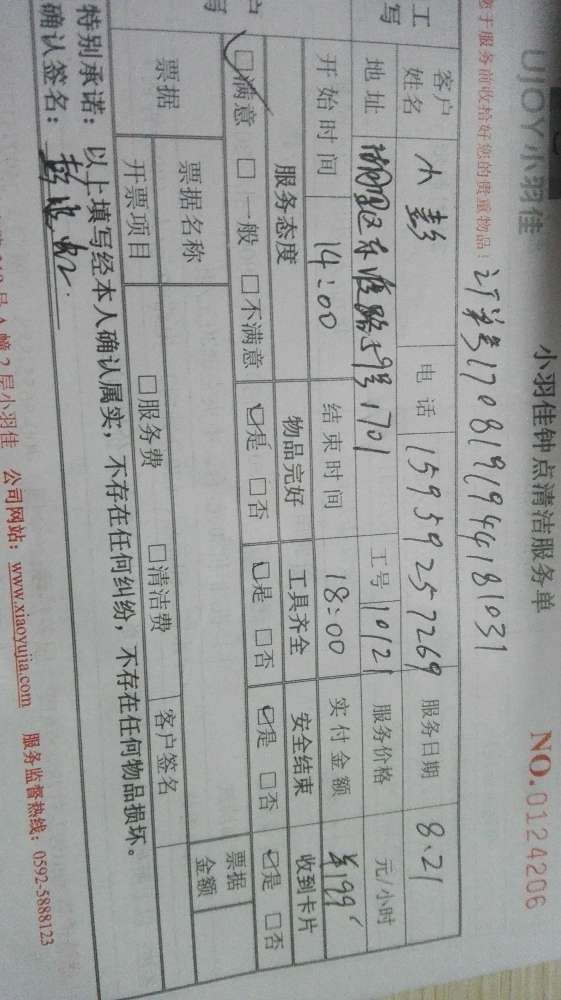 UJOY小羽佳
小羽佳钟点清洁服务单
NO.0124206
于服务前收拾好您的贵重物品!
订单号1708191944181031
客户姓名 小彭 电话 15959257269 服务日期 8.21
地址 湖里区 路59号1701 工号 10121 服务价格 元/小时
开始时间 14:00 结束时间 18:00 实付金额 ¥199
服务态度 物品完好 工具齐全 安全结束 收到卡片
☑满意 □一般 □不满意 ☑是 □否 ☑是 □否 ☑是 □否 ☑是 □否
票据 票据名称 票据金额
开票项目 □服务费 □清洁费 客户签名
特别承诺:以上填写经本人确认属实,不存在任何纠纷,不存在任何物品损坏。
确认签名:彭
A幢2层小羽佳 公司网站:www.xiaoyujia.com 服务监督热线:0592-5888123
工
写
户
写